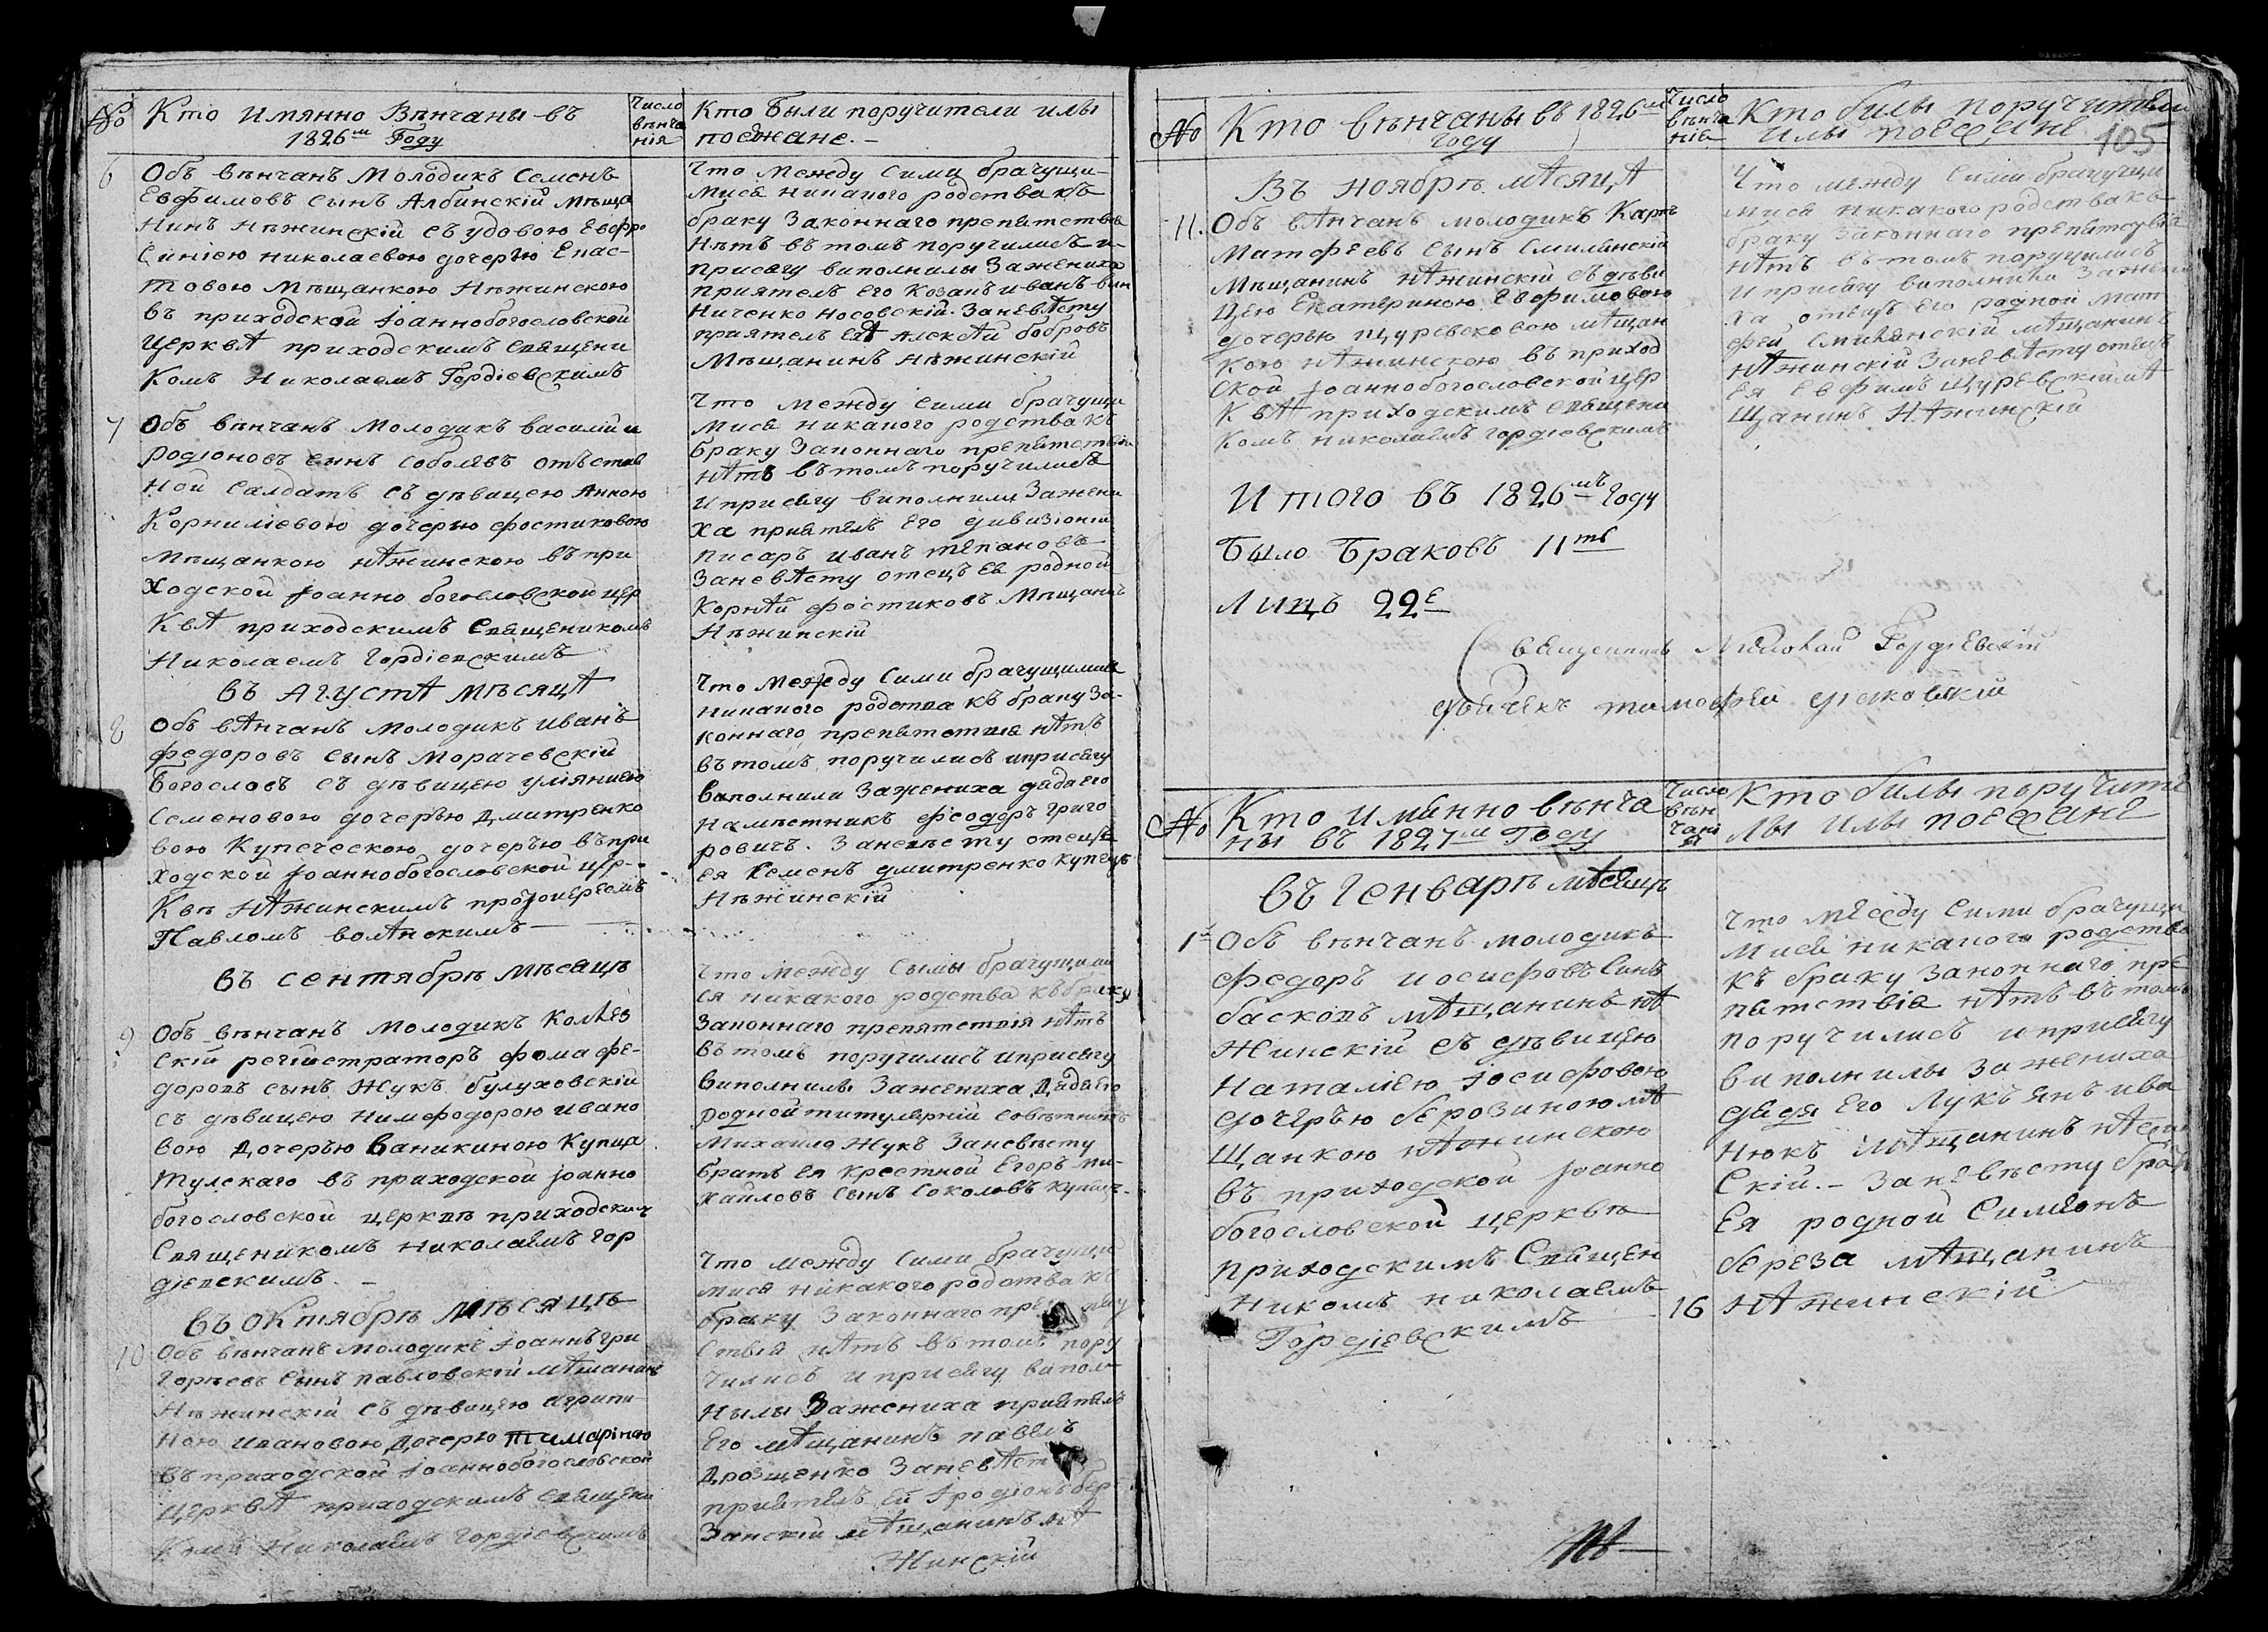 №
Кто Имянно Вѣнчаны въ
1826м Году
Число
вѣнча
нія
Кто Были поручители илы
поезжане. -
6
Объ вѣнчанъ Молодикъ Семенъ
Евфимовъ сынъ Албинскій Мѣща
нинъ Нѣжинскій съ удовою Евфро
Синіею николаевою дочерью Спас-
товою Мѣщанкою Нѣжинскою
въ приходской Іоаннобогословской
Церквѣ приходскимъ Священи
комъ Николаемъ Гордіевскимъ
Что Между Сими брачущи-
Мися никакого родства къ
браку Законнаго препятствія
Нѣтъ въ томъ поручилисъ и
присягу виполнилы За жениха
приятелъ его Козакъ иванъ
ниченко носовскій. За невѣсту
приятел ея Алексѣй бобровъ
Мѣщанинъ нѣжинскій
7
Объ вѣнчанъ Молодикъ василій
родіоновъ сынъ соболевъ отъстав
ной Салдатъ съ дѣвицею Анною
Корниліевою дочерью фостиковою
мѣщанкою нѣжинскою въ при
ходской Іоанно богословской цер
квѣ приходскимъ Священикомъ
Николаемъ гордіевскимъ
Что между сими брачущи
мися никакого родства къ
браку Законнаго препятствія
нѣтъ въ томъ поручилисъ
и присягу виполнили За жени
ха приятель его дивизіоній
писаръ иванъ тепановъ
За невѣсту отецъ ея родной
Корнѣй фостиковъ Мѣщанинъ
Нѣжинскій
въ Августѣ мѣсяцѣ
8
Объ вѣнчанъ молодикъ иванъ
федоровъ сынъ Морачевскій
богословъ съ дѣвицею улияниею
Семеновою дочерью Дмитренко
вою Купеческою дочерью въ при
ходской Іоаннобогословской цер-
квѣ Нѣжинскимъ протоиереемъ
Павломъ волѣнскимъ
Что Между Сими брачущимися
никакого родства къ браку за-
коннаго препятствия нѣтъ
въ томъ поручилисъ и присягу
виполнили За жениха дядя его
намѣстникъ феодоръ григо
ровичъ. За невѣсту отецъ
ея Семенъ дмитренко купецъ
Нѣжинскій
въ сентябрѣ мѣсяцѣ
9
Объ вѣнчанъ молодикъ Колѣз
скій регістраторъ фома фе-
доровъ сынъ Жукъ булуховскій
съ дѣвицею нимфодорою ивано
вою Дочерью ваникиною Купца
тулскаго въ приходской Іоанно
богословской церквѣ приходским
Священикомъ николаемъ гор
діевскимъ. -
Что между сымы брачущими
ся никакого родства къ браку
Законнаго препятствія нѣтъ
въ томъ поручилисъ и присягу
виполнилы За жениха Дядя его
родной титулярній совѣтникъ
Михайло Жукъ За невѣсту
братъ ея крестной Егоръ ми-
хайловъ сынъ соколовъ купецъ.
въ Октябрѣ мѣсяцѣ
10
Объ вѣнчанъ молодикъ Іоаннъ гри
горьевъ сынъ павловскій мѣщанинъ
Нѣжинскій съ дѣвицею агрипи
ною ивановою дочерю
въ приходской Іоаннобогословской
церквѣ приходскимъ священи
комъ николаемъ гордіевскимъ
Что между сими брачущи
мися никакого родства къ
браку Законнаго
ствія нѣтъ въ томъ пору
чилисъ и присягу випол
нылы За жениха приятель
его мѣщанинъ павелъ
Дрозщенко За невѣст
приятелъ ей Іродіонъ бер
занскій мѣщанинъ нѣ
жинскій
№
Кто вѣнчаны въ 1826м
году
Число
вѣнча
нія
Кто билы поручители
илы поезжане
105
Въ Ноябрѣ мѣсяцѣ
11.
Объ вѣнчанъ молодикъ Карпъ
Матфеевъ сынъ Смилянскій
мѣщанинъ нѣжинскій съ дѣви
цею Екатериною Евфимовою
дочерью щуревсковою мѣщан
кою нѣжинскою въ приход
ской Іоаннобогословской цер
квѣ приходскимъ священи
комъ николаемъ гордіевскимъ
Что между сими брачущи
мися никакого родства къ
браку законнаго препятствія
нѣтъ въ томъ поручилисъ
и присягу виполнили За жени
ха отецъ его родной мат
фей Смилянскій мѣщанинъ
нѣжинскій За невѣсту отецъ
ея Евфимъ щуревскій мѣ
щанинъ Нѣжинскій
Итого въ 1826мъ Году
Было Браковъ 11ть
Лицъ 22е
Священникъ Николай Гордіевскій
дьячекъ тимофей
№
Кто имянно вѣнча
ны въ 1827м Году
Число
вѣн
чані
я
Кто билы поручите
лы илы поезжане
въ Генварѣ мѣсяцѣ
1й
Объ вѣнчанъ молодикъ
федоръ иосифовъ синъ
басковъ мѣщанинъ нѣ
жинскій съ дѣвицею
наталіею Іосифовою
дочерью березиною мѣ
щанкою нѣжинскою
въ приходской Іоанно
богословской церквѣ
приходскимъ священ
никомъ николаемъ
Гордіевскимъ
16
Что между сими брачущи
мися никакого родства
къ браку законнаго пре
пятствія нѣтъ въ томъ
поручилисъ и присягу
виполнилы за жениха
дядя его Лукъянъ ива
нюкъ мѣщанинъ нѣжин
скій. - За невѣсту братъ
ея родной Симеонъ
береза мѣщанинъ
нѣжинскій